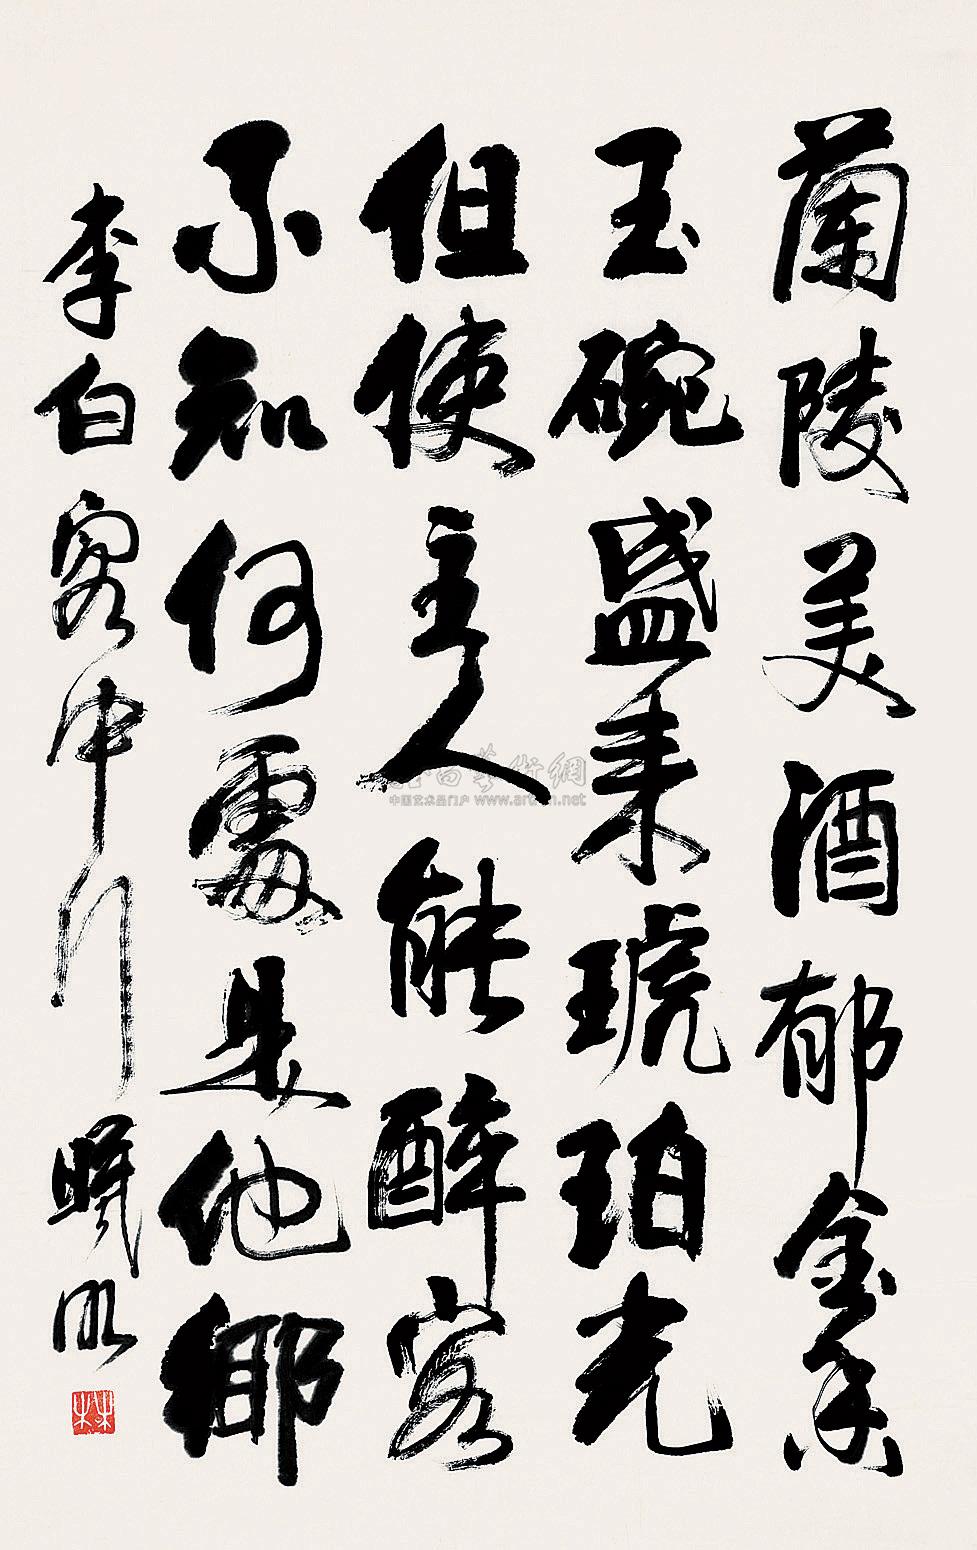 蘭陵美酒郁金香
玉碗盛来琥珀光
但使主人能醉客
不知何處是他鄉
李白客中行
中国艺术品门户 www.artxun.net